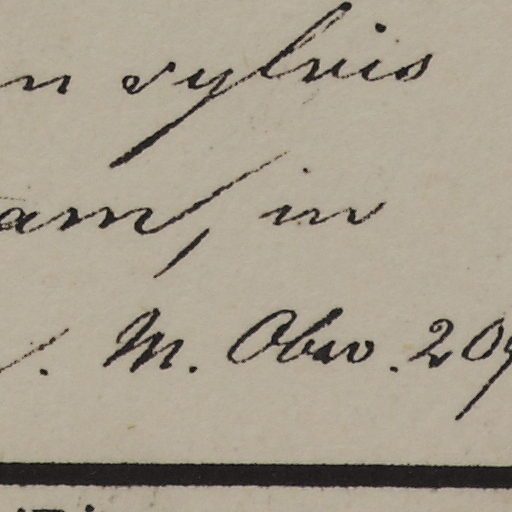 n sylvis
am, in
. M. Obs. 209